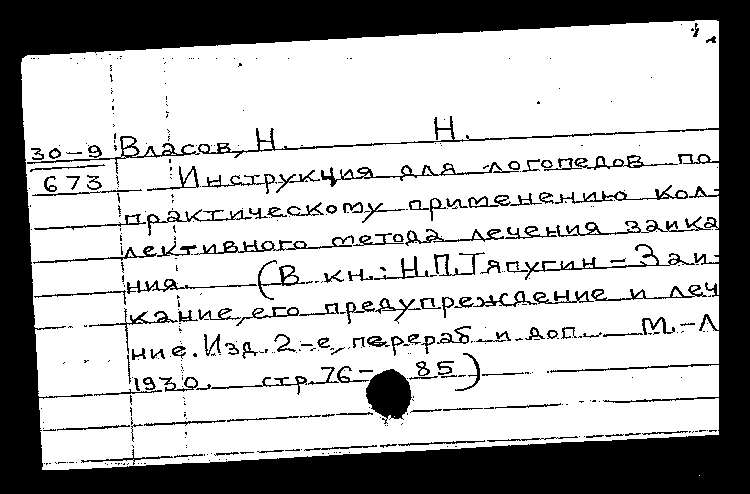 30-9 Власов, Н. Н.
673 Инструкция для логопедов по
практическому применению кол-
лективного метода лечения заика
ния. (В кн.: Н.П.Тяпугин - Заи-
кание, его предупреждение и леч
ние. Изд. 2-е, перераб. и доп. М.-Л
1930. стр. 76- 85)